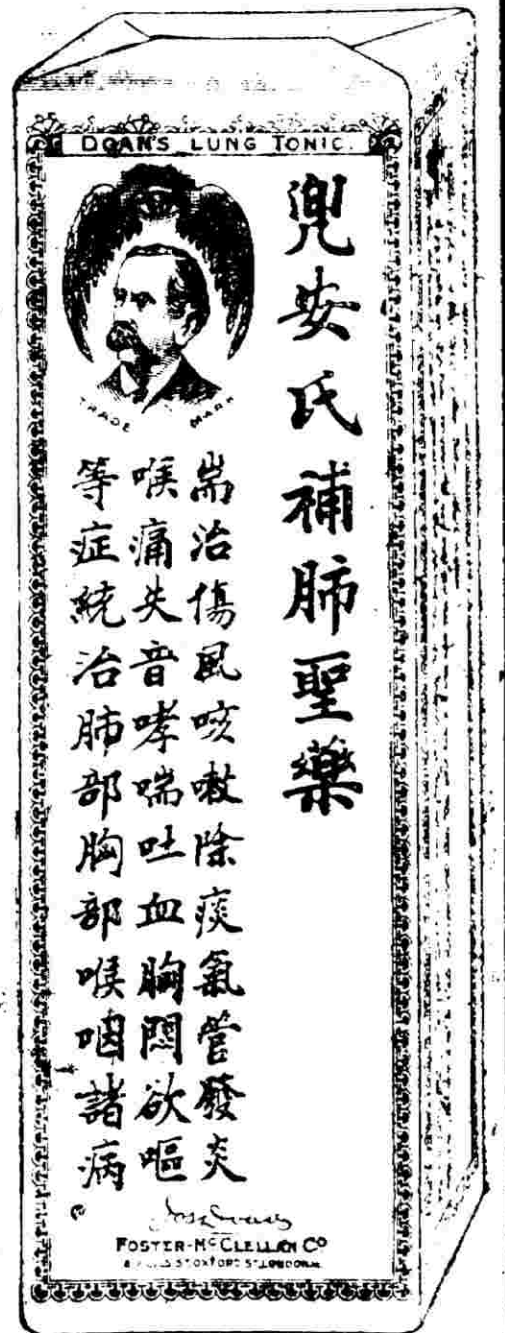 DOAN'S LUNG TONIC.
TRADE MARK
兜安氏補肺聖藥
耑治傷風咳嗽除痰氣管發炎
喉痛失音哮喘吐血胸悶欲嘔
等症統治肺部胸部喉咽諸病
FOSTER-McCLELLAN Co
OXFORD ST. LONDON